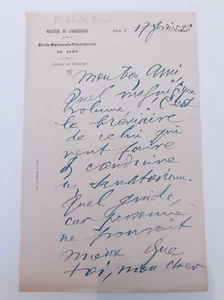 MINISTÈRE DE L'AGRICULTURE
École Nationale Vétérinaire
DE LYON
Cabinet du Directeur
Lyon, le 17 février 2
Mon bon ami,
Quel magnifique
volume ! C'est
le bréviaire
de celui qui
veut faire
& conduire
un Sanatorium.
Quel guide,
car personne
ne pouvait
mieux que
toi, mon cher